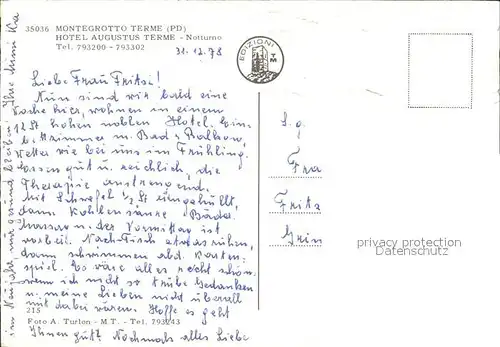 35036 MONTEGROTTO TERME (PD)
HOTEL AUGUSTUS TERME - Notturno
Tel. 793200 - 793302
31.12.78
EDIZIONI
TM
Liebe Frau Fritzi!
Nun sind wir bald eine
Woche hier, wohnen in einem
12 St. hohen noblen Hotel. Ein-
bettzimmer m. Bad u. Balkon,
Wetter wie bei uns im Frühling.
Essen gut u. reichlich, die
Therapie anstrengend.
Mit Schwefel 1/2 St eingehüllt,
dann Kohlensäure Bäder
Massagen. der Vormittag ist
vorbei. Nach Tisch etwas ruhen,
dann schwimmen abd. Karten-
spiel. Es wäre alles recht schön
wenn ich nicht so trübe Gedanken
u. meine Lieben nicht überall
mit dabei wären. Hoffe es geht
Ihnen gut! Nochmals alles Liebe
im Neujahr, und gesund bleiben Ihre Mimi
215
Foto A. Turlon - M.T. - Tel. 793243
S. g.
Fra
Fritz
Grin
privacy protection
Datenschutz